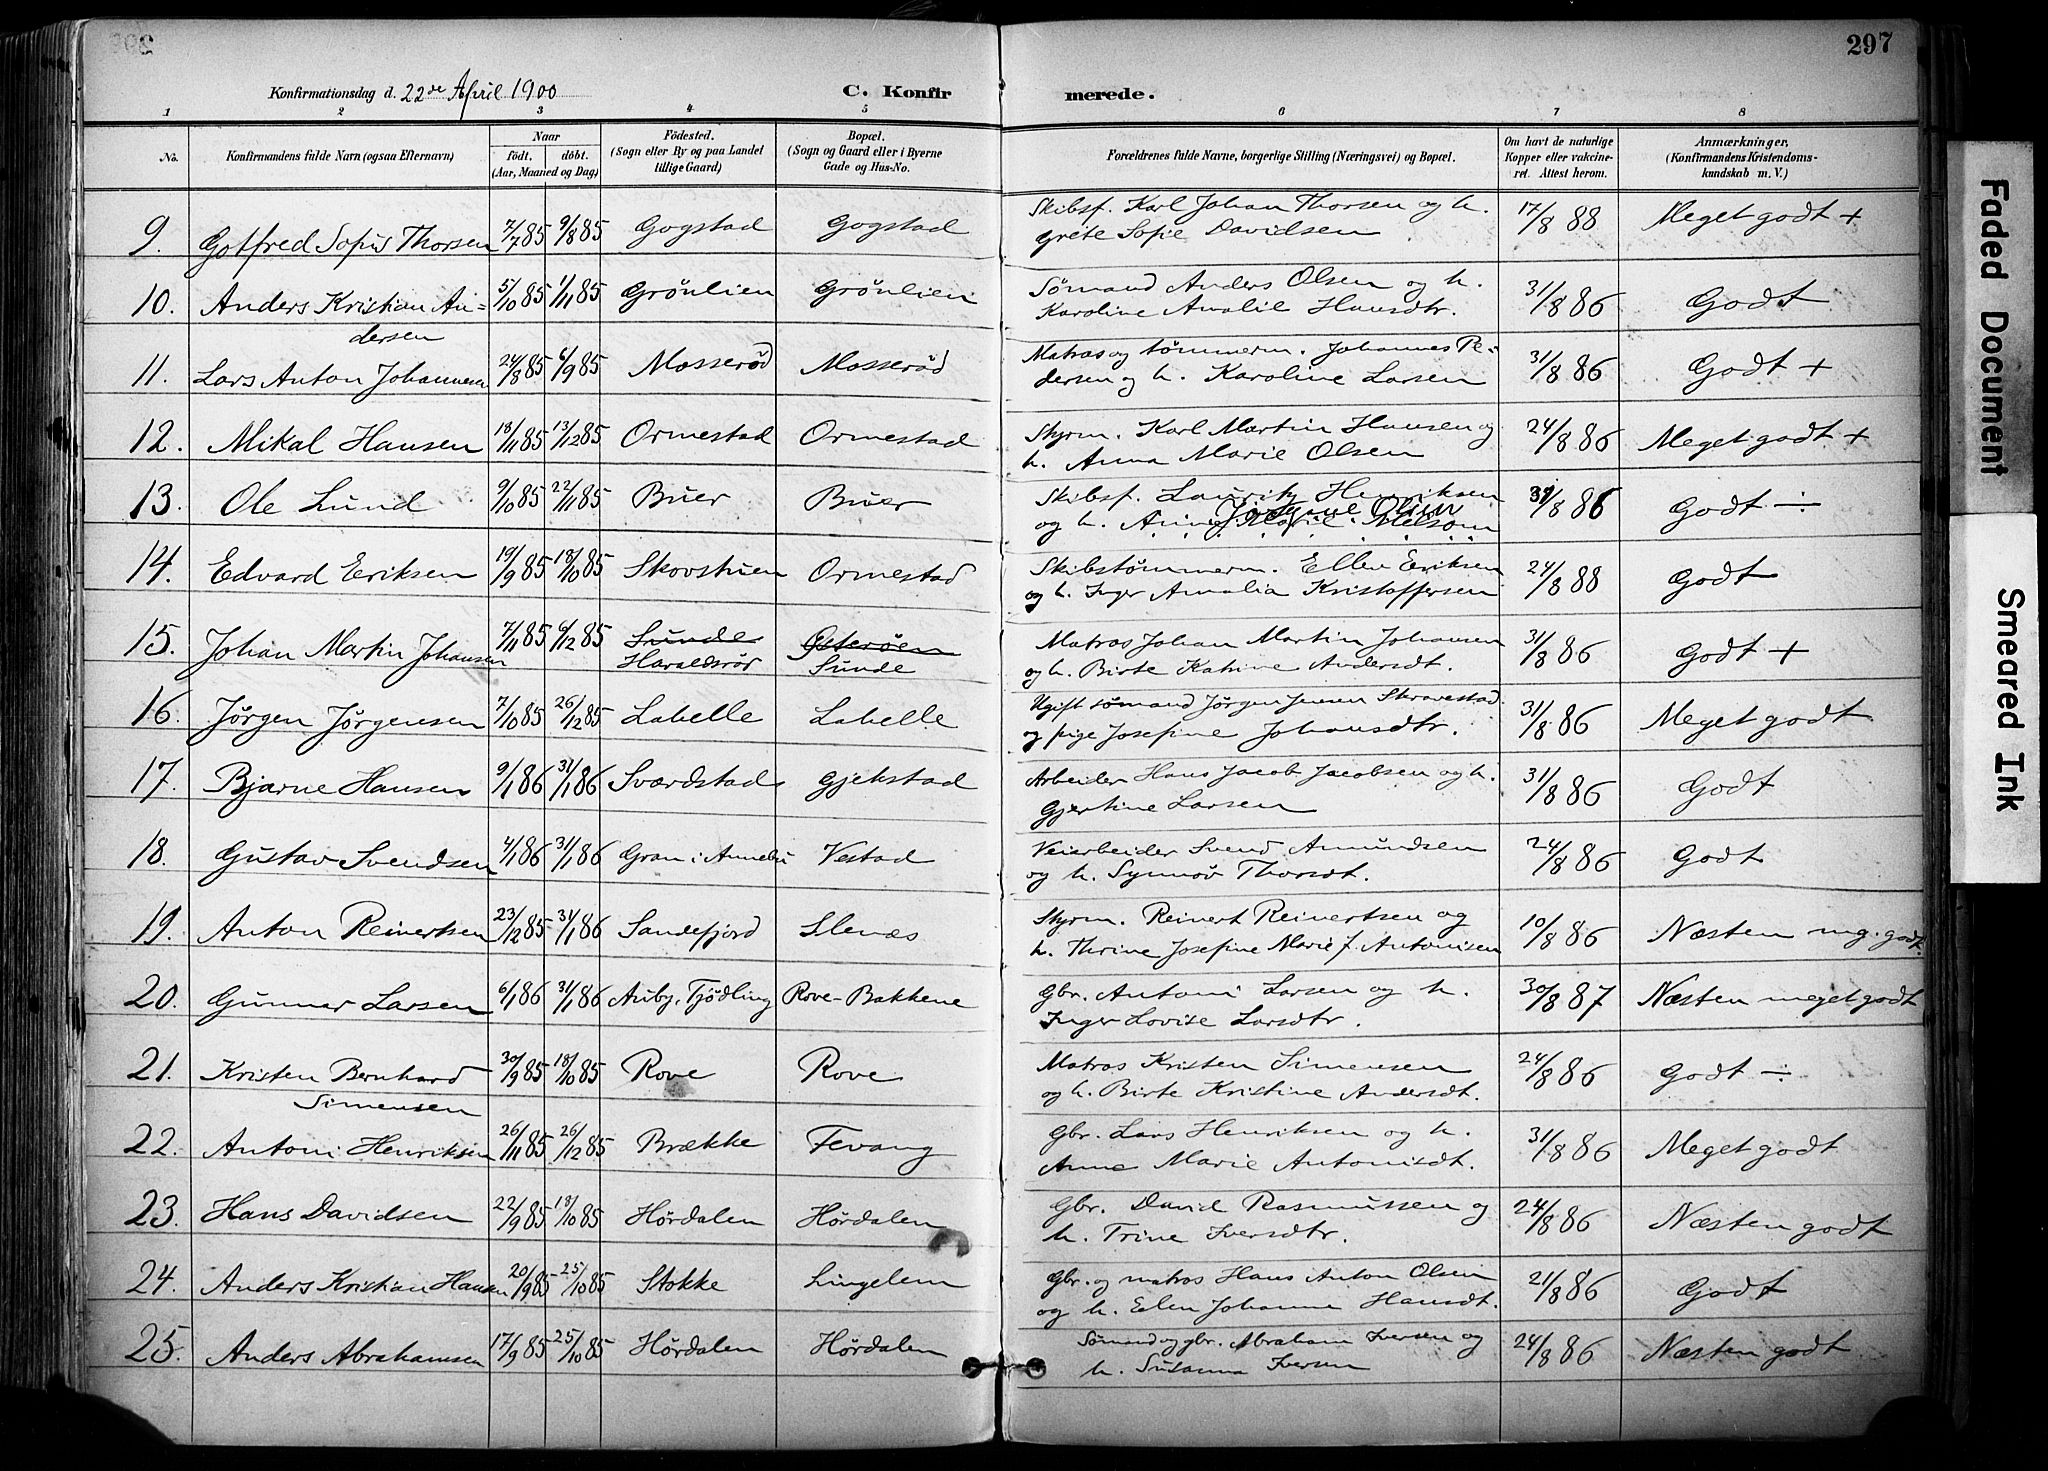 297
Konfirmationsdag d. 22de April 1900 C. Konfir merede.
1 2 3 4 5 6 7 8
No. Konfirmandens fulde Navn (ogsaa Efternavn) Naar født, døbt. (Aar, Maaned og Dag) Födested. (Sogn eller By og paa Landet tillige Gaard) Bopæl. (Sogn og Gaard eller i Byerne Gade og Hus-No. Forældrenes fulde Navne, borgerlige Stilling (Næringsvei) og Bopæl. Om havt de naturlige Kopper eller vakcineret. Attest herom. Anmærkninger, (Konfirmandens Kristendomskundskab m. V.)
9. Gotfred Sofus Thorsen 7/7 85 9/8 85 Gogstad Gogstad Skibsf. Karl Johan Thorsen og h. 17/8 88 Meget godt +
Grete Sofie Davidsen
10. Anders Kristian An- 5/10 85 1/11 85 Grönlien Grönlien Sømand Anders Olsen og h. 31/8 86 Godt
dersen Karoline Amalie Hansdtr.
11. Lars Anton Johannesen 24/8 85 6/9 85 Mosserød Mosserød Matros og tømmerm. Johannes Pe- 31/8 86 Godt +
dersen og h. Karoline Larsen
12. Mikal Hansen 18/11 85 13/12 85 Ormestad Ormestad Styrm. Karl Martin Hansen og 24/8 86 Meget godt +
h. Anna Marie Olsen
13. Ole Lund 9/10 85 22/11 85 Buer Buer Skibsf. Lauritz Henriksen 31/8 86 Godt ÷
og h. Olsen
14. Edvard Eriksen 19/9 85 18/10 85 Skovstuen Ormestad Skibstømmerm. Ellen Eriksen 24/8 88 Godt
og h. Inger Amalia Kristoffersen
15. Johan Martin Johansen 7/11 85 6/12 85 Sunde Østerøen Matros Johan Martin Johansen 31/8 86 Godt +
Haraldsrør Sunde og h. Birte Katrine Andersdt.
16. Jørgen Jørgensen 7/10 85 26/12 85 Labelle Labelle Ugift sømand Jørgen Jensen Skravestad 31/8 86 Meget godt
og pige Josefine Johansdtr.
17. Bjarne Hansen 9/1 86 31/1 86 Sværdstad Gjekstad Arbeider Hans Jacob Jacobsen og h. 31/8 86 Godt
Gjertine Larsen
18. Gustav Svendsen 4/1 86 31/1 86 Gran i Annebu Vestad Veiarbeider Svend Amundsen 24/8 86 Godt
og h. Synnøv Thorsdt.
19. Anton Reinertsen 23/12 85 31/1 86 Sandefjord Slenæs Styrm. Reinert Reinertsen og 10/8 86 Næsten mg. godt.
h. Thrine Josefine Marie f. Antonisen
20. Gunnar Larsen 6/1 86 31/1 86 Auby, Tjödling Rove-Bakkene Gbr. Antoni Larsen og h. 30/8 87 Næsten meget godt
Inger Lovise Larsdtr.
21. Kristen Bernhard 30/9 85 18/10 85 Rove Rove Matros Kristen Simensen 24/8 86 Godt ÷
Simensen og h. Birte Kristine Andersdt.
22. Antoni Henriksen 26/11 85 26/12 85 Brække Fevang Gbr. Lars Henriksen og h. 31/8 86 Meget godt
Anne Marie Antonisdt.
23. Hans Davidsen 22/9 85 18/10 85 Hørdalen Hørdalen Gbr. David Rasmussen og 24/8 86 Næsten godt
h. Trine Iversdtr.
24. Anders Kristian Hansen 20/9 85 25/10 85 Stokke Lingelem Gbr. og matros Hans Anton Olsen 21/8 86 Godt
og h. Elen Johanne Hansdt.
25. Anders Abrahamsen 17/9 85 25/10 85 Hørdalen Hørdalen Sømand og gbr. Abraham Iversen og 24/8 86 Næsten godt
h. Susanna Iversen
Faded Document
Smeared Ink